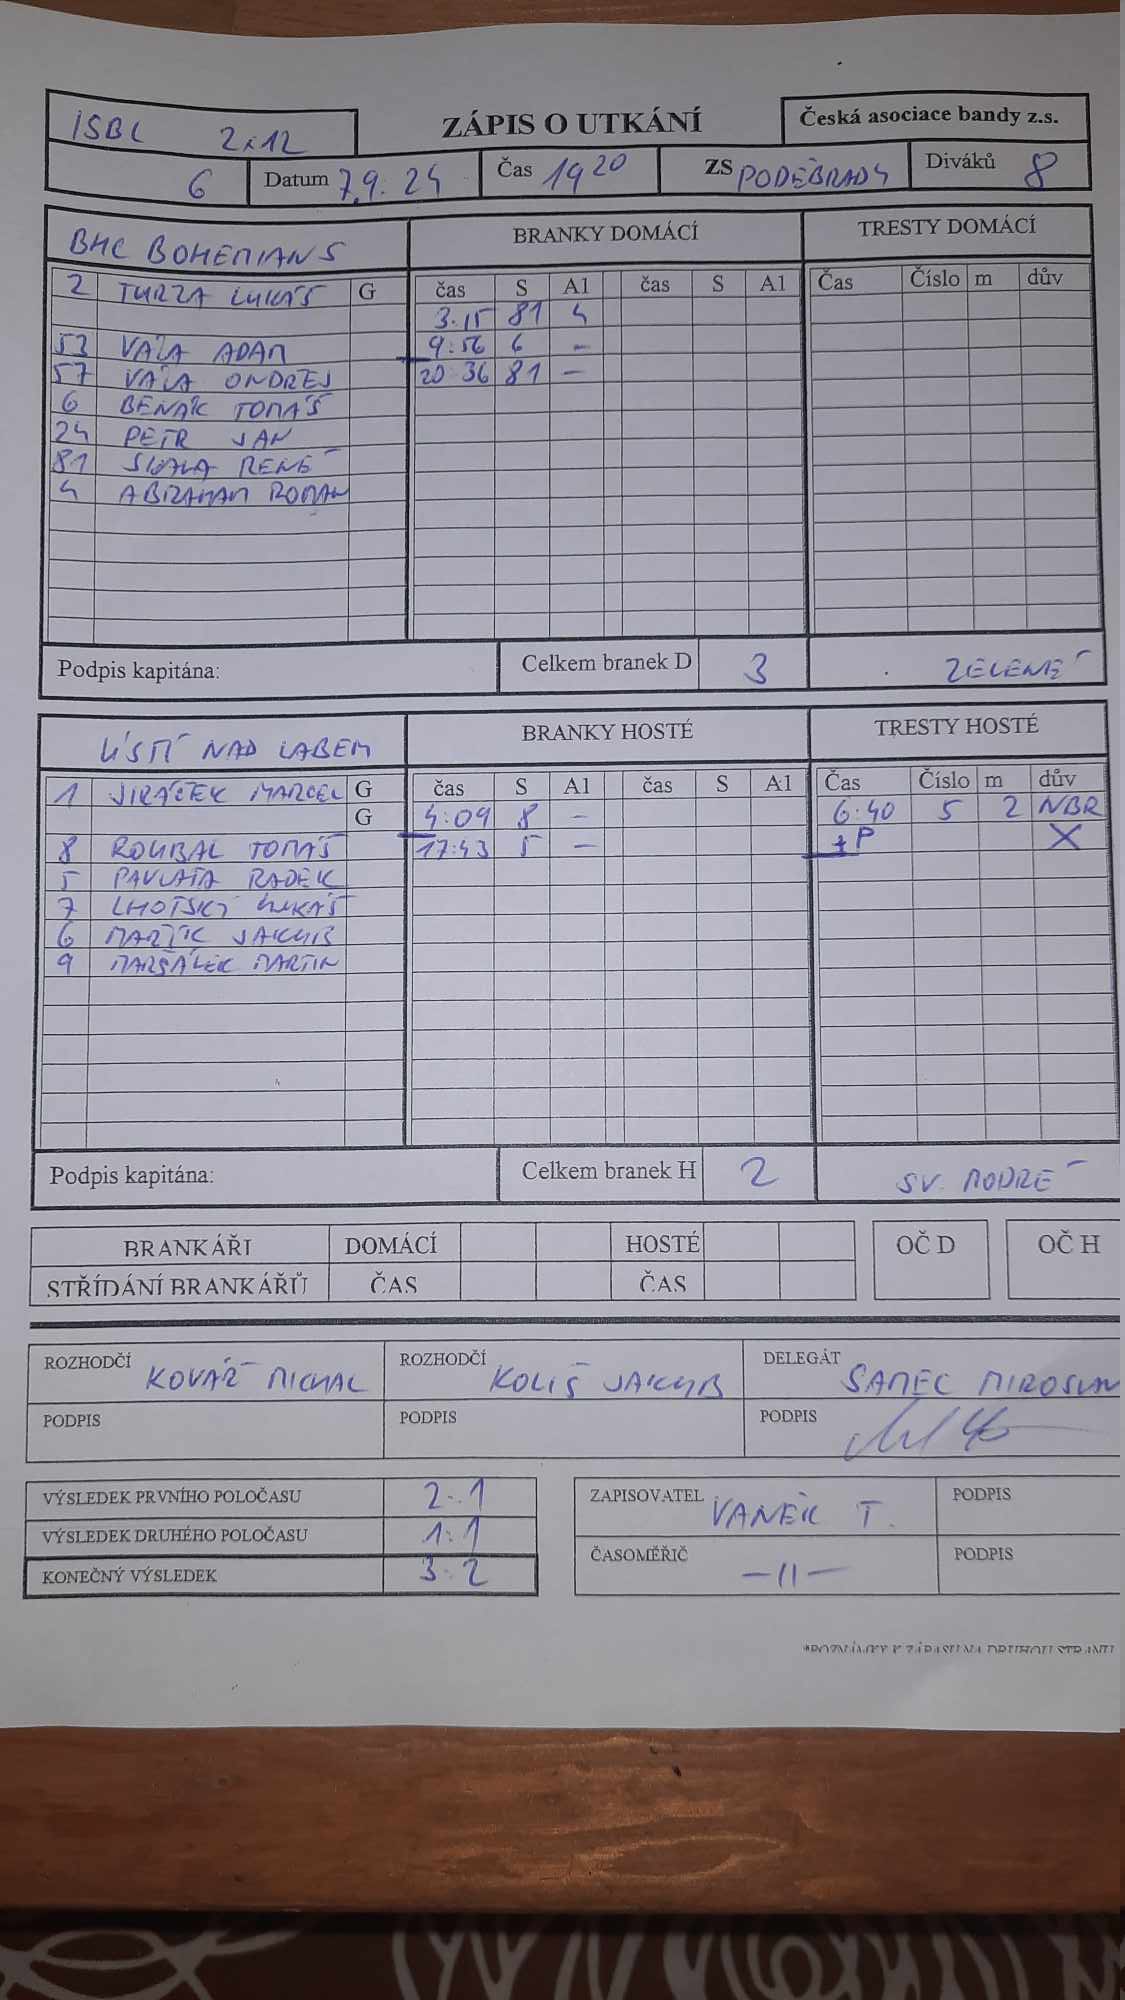 ISBL 2x12 ZÁPIS O UTKÁNÍ Česká asociace bandy z.s.
6 Datum 7.9. 24 Čas 19 20 ZS PODĚBRADY Diváků 8
BHC BOHEMIANS BRANKY DOMÁCÍ TRESTY DOMÁCÍ
2 TURZA LUKÁŠ G čas S A1 čas S A1 Čas Číslo m dův
3:15 81 4
53 VÁŽA ADAM 9:56 6 –
57 VÁŽA ONDREJ 20:36 81 –
6 BENÁK TOMÁŠ
24 PETR JAN
81 SKÁLA RENÉ
4 ABRAHAM ROMAN
Podpis kapitána: Celkem branek D 3 ZELENÉ
ÚSTÍ NAD LABEM BRANKY HOSTÉ TRESTY HOSTÉ
1 JIRÁČEK MARCEL G čas S A1 čas S A1 Čas Číslo m dův
G 4:09 8 – 6:40 5 2 NBR
8 ROUBAL TOMÁŠ 17:43 5 – +P X
5 PAVLATA RADEK
7 LHOTSKÝ LUKÁŠ
6 MARTÍK JAKUB
9 MARŠÁLEK MARTIN
Podpis kapitána: Celkem branek H 2 SV. MODRÉ
BRANKÁŘI DOMÁCÍ HOSTÉ OČ D OČ H
STŘÍDÁNÍ BRANKÁŘŮ ČAS ČAS
ROZHODČÍ KOVÁŘ MICHAL ROZHODČÍ KOLIŠ JAKUB DELEGÁT SAMEC MIROSLAV
PODPIS PODPIS PODPIS
VÝSLEDEK PRVNÍHO POLOČASU 2:1 ZAPISOVATEL VANĚK T. PODPIS
VÝSLEDEK DRUHÉHO POLOČASU 1:1
KONEČNÝ VÝSLEDEK 3:2 ČASOMĚŘIČ –II– PODPIS
*POZNÁMKY K ZÁPASU NA DRUHOU STRANU